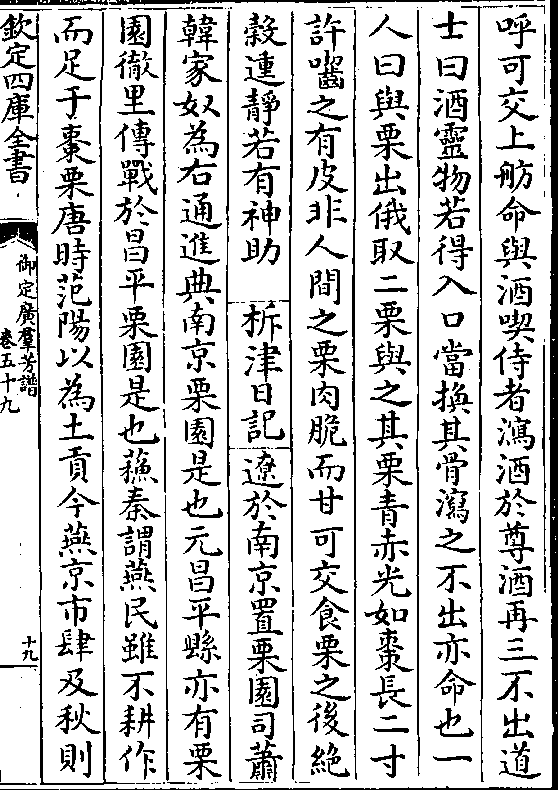 呼可交上舫命與酒喫侍者瀉酒於尊酒再三不出道
士曰酒靈物若得入口當換其骨瀉之不出亦命也一
人曰與栗出俄取二栗與之其栗青赤光如棗長二寸
許嚙之有皮非人間之栗肉脆而甘可交食栗之後絶
穀連靜若有神助 析津日記 遼於南京置栗園司蕭
韓家奴為右通進典南京栗園是也元昌平縣亦有栗
園徹里傳戰於昌平栗園是也蘓秦謂燕民雖不耕作
而足于棗栗唐時范陽以為土貢今燕京市肆及秋則
欽定四庫全書
御定廣羣芳譜
卷五十九
十九